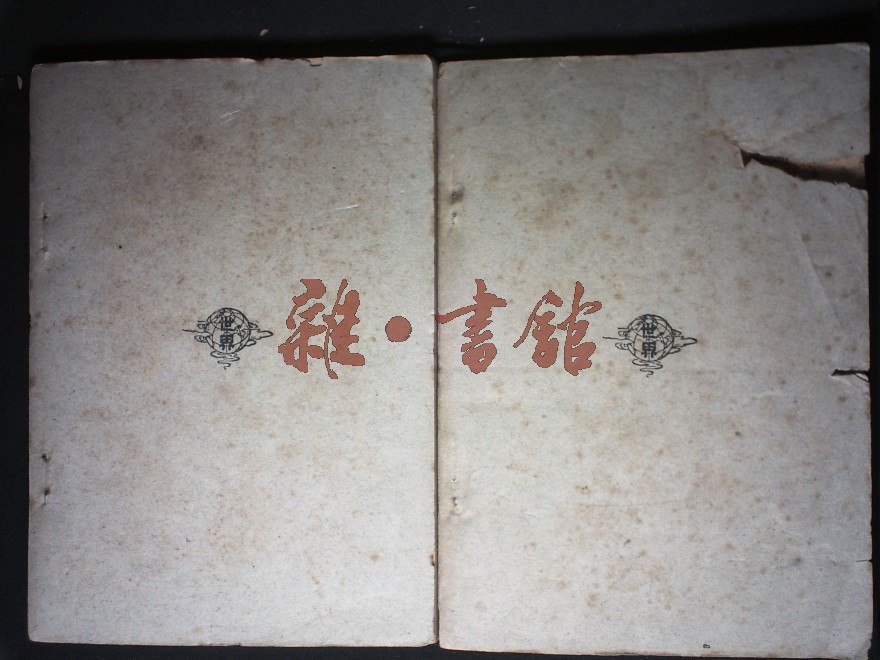 世界
雜·書舘
世界